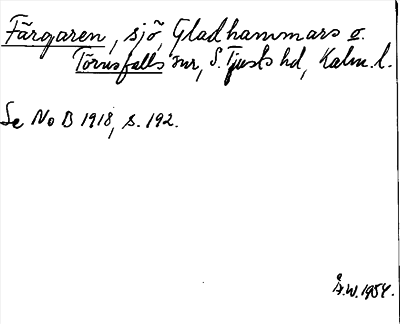 Färgaren, sjö, Gladhammars o.
Törnsfalls snr, S. Tjusts hd, Kalm. l.
Se No B 1918, s. 192.
Å.W. 1954.